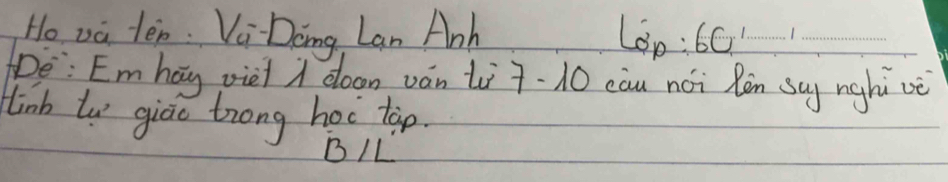 Họ và tên: Vũ Dáng Lan Anh Lớp: 6C
Đề: Em hãy viết 1 đoạn văn từ 7-10 câu nói lên suy nghĩ về
tính tự giác trong học tập.
B/L